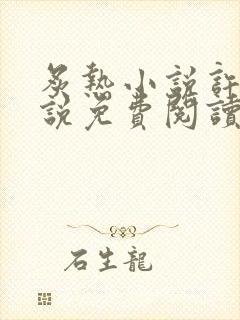 炙熱小說許
說免費閱讀
石生龍